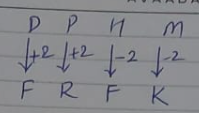 D P H M
↓+2 ↓+2 ↓-2 ↓-2
F R F K